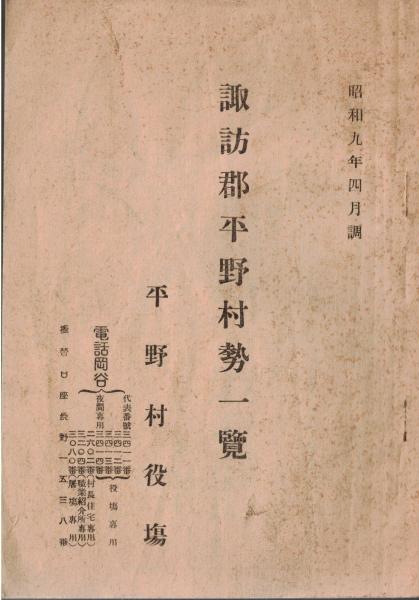 昭和九年四月調
諏訪郡平野村勢一覽
平野村役塲
電話岡谷
代表番號三四一一番
三四一二番
三四一三番
夜間專用三四一四番
役塲專用
二六〇二番(村長住宅專用)
三二〇四番(職業紹介所專用)
三〇八〇番(屠塲專用)
振替口座長野一五三八番